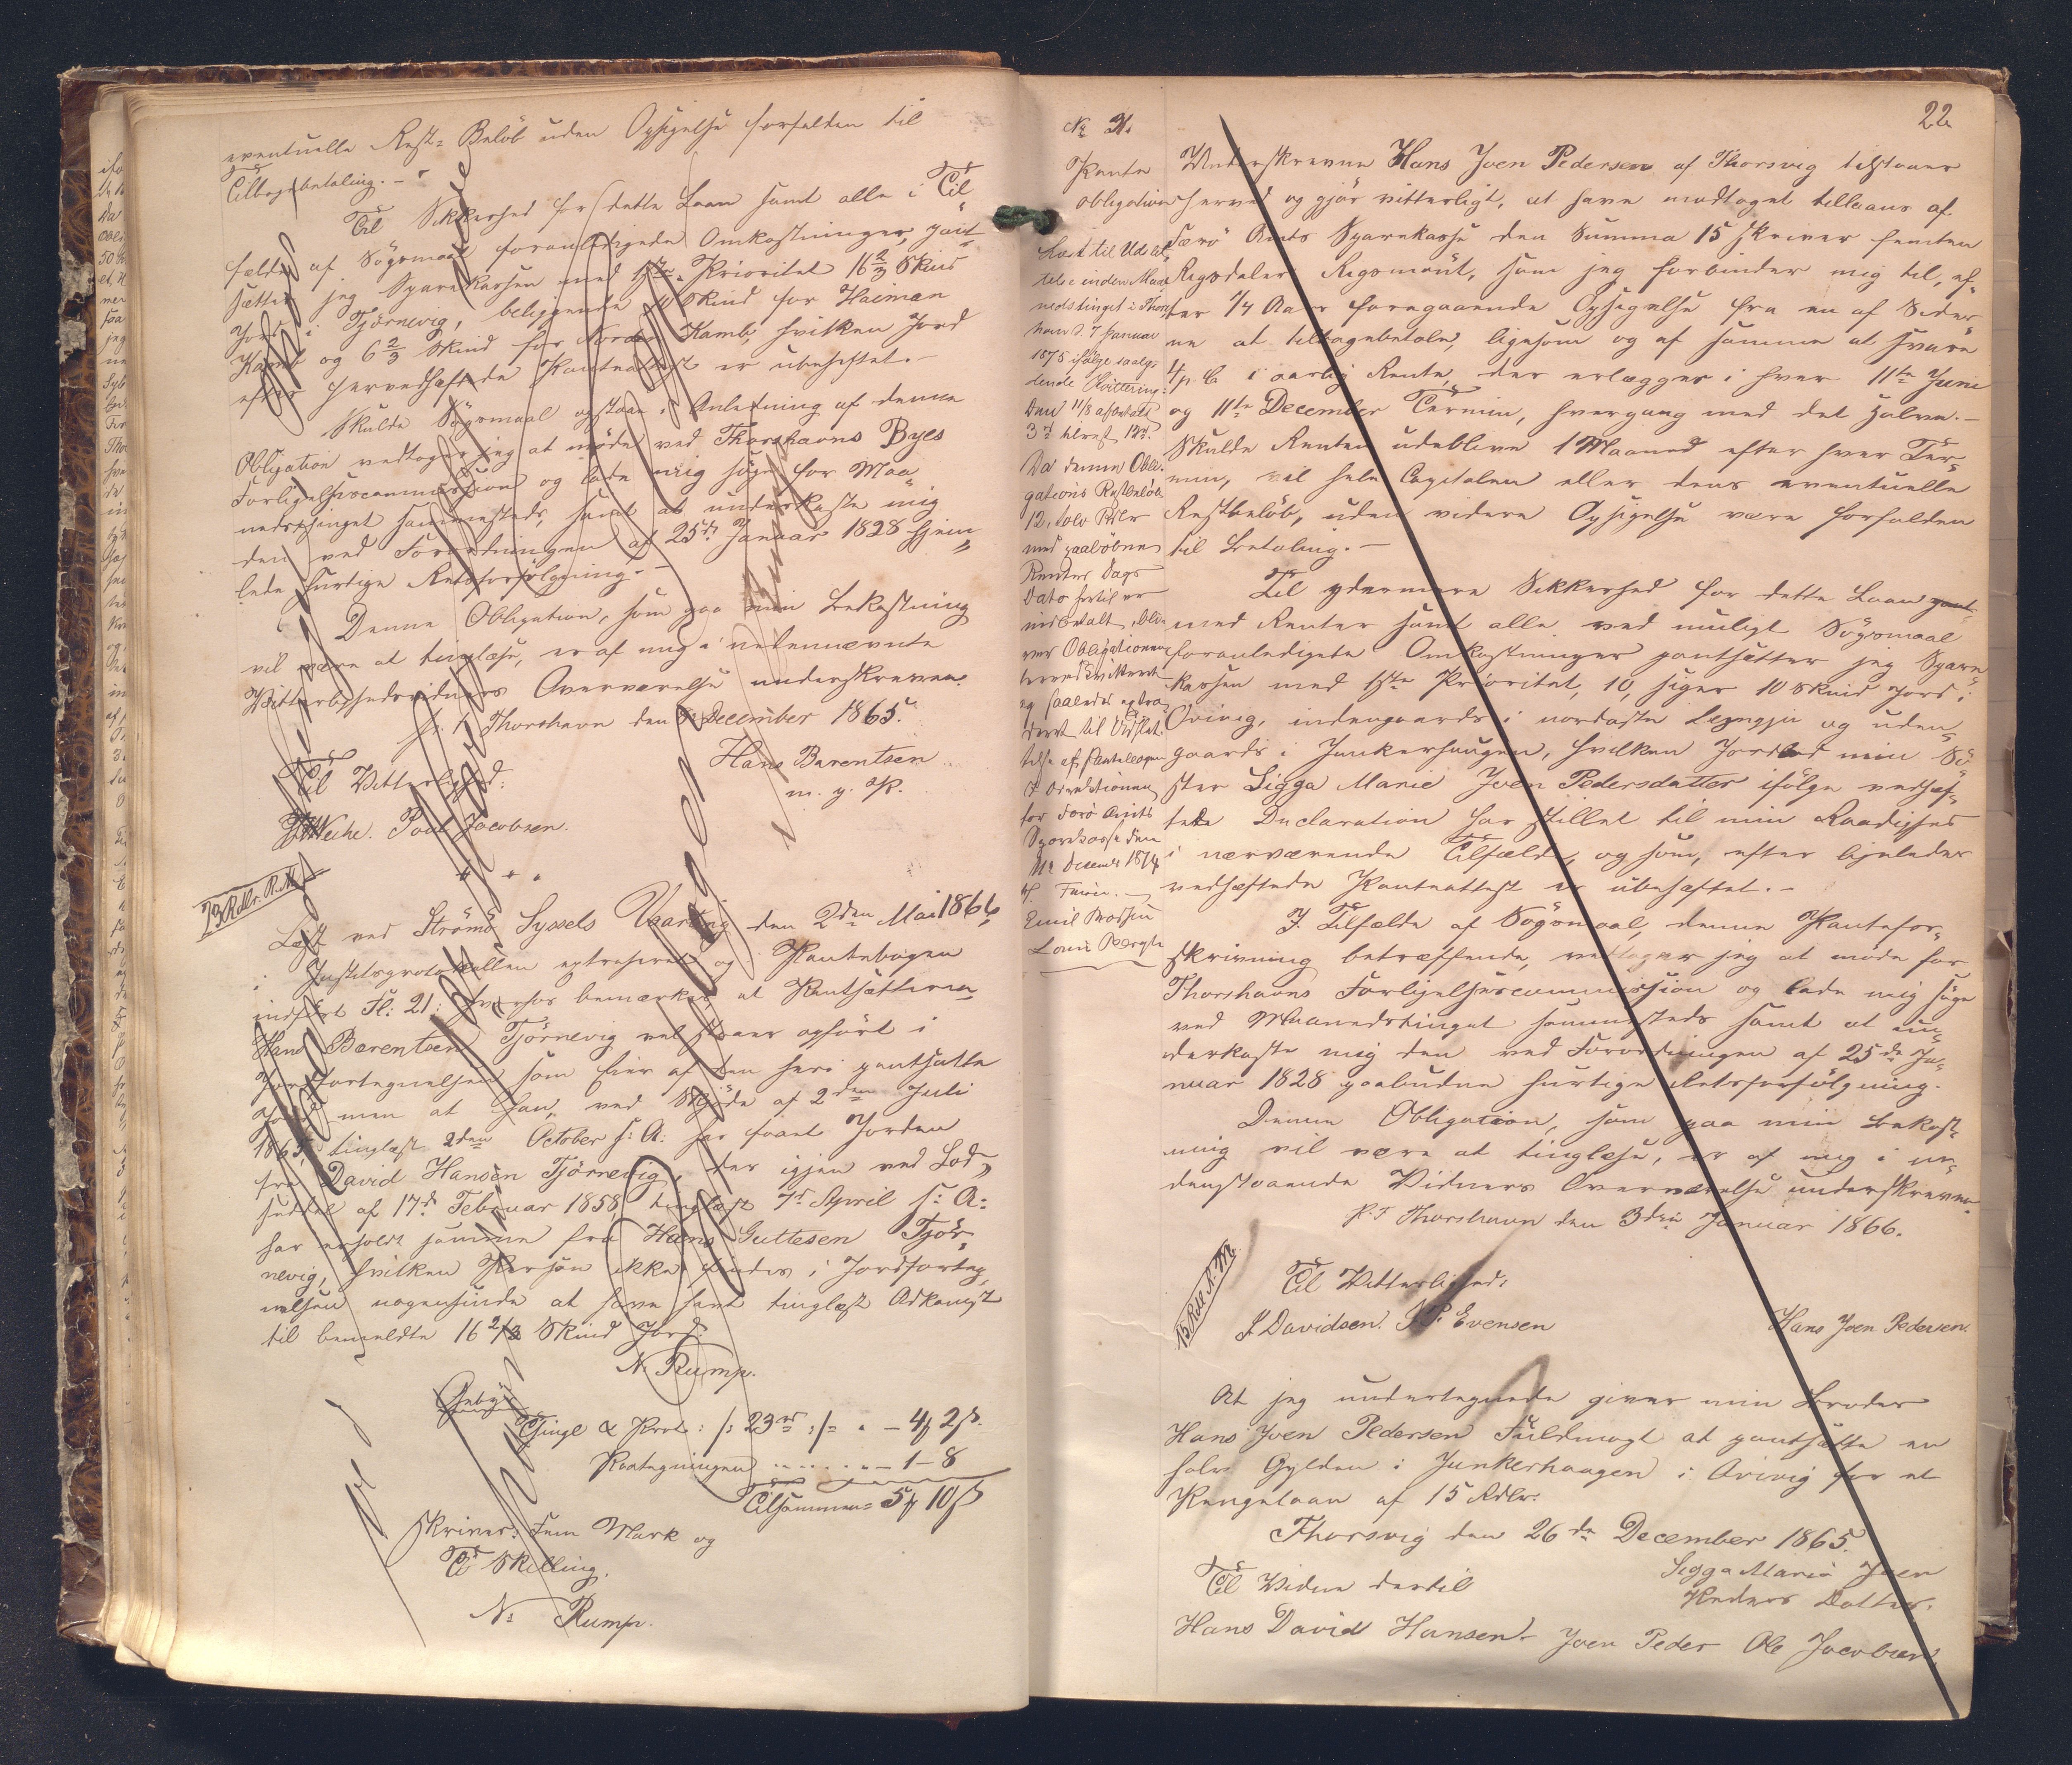 eventuelle Rest-Beløb uden Opsigelse forfalden til
Tilbagebetaling. –
Til Sikkerhed for dette Laan samt alle i Til-
fælde af Søgsmaal foranledigede Omkostninger, pant-
sætter jeg Sparekassen med 1ste Prioritet 16 2/3 Skind
Jord i Tjörnevig, beliggende Skind for Heiman
Kamb og 6 2/3 Skind for Norder Kamb, hvilken Jord
efter hervedhæftede Panteattest er ubehæftet. –
Skulde Søgsmaal opstaae i Anledning af denne
Obligation vedtager jeg at møde ved Thorshavns Byes
Forligelsescommission og lade mig søge for Maa-
nedstinget sammesteds, samt at underkaste mig
den ved Forordningen af 25de Januar 1828 hjem-
lede hurtige Retsforfølgning. –
Denne Obligation, som paa min Bekostning
vil være at tinglæse, er af mig i nedennævnte
Vitterlighedsvidners Overværelse underskreven.
p. t. Thorshavn den December 1865.
Hans Barentsen
m. p. P.
Til Vitterlighed:
Poul Jacobsen.
23 Rdlr. R.M.
Læst ved Strømø Syssels Vaarting den 2den Mai 1866
i Justitsprotokollen extraheret og Pantebogen
indført Fl: 21: hvorhos bemærkes, at Pantsætteren
Hans Barentsen Tjörnevig vel staaer opført i
Jordfortegnelsen som Eier af den heri pantsatte
Jord men at han, ved Skjøde af 2den Juli
1865, tinglæst 2den October s: A: har faaet Jorden
fra David Hansen Tjörnevig, der igjen ved Lod-
seddel af 17de Februar 1858, tinglæst 7de April s: A:
har erholdt samme fra Hans Guttesen Tjör-
nevig, hvilken Person ikke findes i Jordforteg-
nelsen nogensinde at have havt tinglæst Adkomst
til bemeldte 16 2/3 Skind Jord.
N. Rump.
Gebyr
Tingl & Prot: /: 23 rd :/ - 4 ₰ 2 ß.
Paategningen - 1 - 8
Tilsammen = 5 ₰ 10 ß
skriver: Fem Mark og
Ti Skilling.
N: Rump.
22
№ 21.
Pante
obligation
Læst til Udslet-
telse inden Maa-
nedstinget i Thors-
havn d. 7 Januar
1875 ifølge saaly-
dende Qvittering:
Den 11/8 afbetalt
3 rd tilrest 12 rd.
Da denne Obli-
gations Restbeløb
12, tolv Rdlr
med paaløbne
Renter Dags
Dato hertil er
indbetalt, bli-
ver Obligationen
herved qvitteret
og saaledes extra-
deret til Udslet-
telse af Pantebogen
I Directionen
for Færø Amts
Sparekasse den
11te Decembr 1874
H. Finsen.
Emil Brodsen
Louis Bergh
Underskrevne Hans Joen Pedersen af Thorsvig tilstaaer
herved og gjør vitterligt, at have modtaget tillaans af
Færø Amts Sparekasse den Summa 15 skriver femten
Rigsdaler Rigsmønt, som jeg forbinder mig til, ef-
ter 1/4 Aars foregaaende Opsigelse fra en af Sider-
ne at tilbagebetale, ligesom og af samme at svare
4 p. C i aarlig Rente, der erlægges i hver 11te Juni
og 11te December Termin, hvergang med det Halve. –
Skulde Renten udeblive 1 Maaned efter hver Ter-
min, vil hele Capitalen eller dens eventuelle
Restbeløb, uden videre Opsigelse være forfalden
til Betaling. –
Til ydermere Sikkerhed for dette Laan
med Renter samt alle ved muligt Søgsmaal
foranledigede Omkostninger pantsætter jeg Spare-
kassen med 1ste Prioritet, 10, siger 10 Skind Jord i
Qvivig, indengaards i nordaste og uden-
gaards i Junkerhaugen, hvilken Jord min Sø-
ster Sigga Marie Joen Pedersdatter ifølge vedhæf-
tede Declaration har stillet til min Raadighed
i nærværende Tilfælde, og som, efter ligeledes
vedhæftede Panteattest er ubehæftet. –
I Tilfælde af Søgsmaal, denne Pantefor-
skrivning betræffende, vedtager jeg at møde for
Thorshavns Forligelsescommission og lade mig søge
ved Maanedstinget sammesteds samt at un-
derkaste mig den ved Forordningen af 25de Ja-
nuar 1828 paabudne hurtige Retsforfølgning.
Denne Obligation, som paa min Bekost-
ning vil være at tinglæse, er af mig i ne-
denstaaende Vidners Overværelse underskreven.
p. t Thorshavn den 3die Januar 1866.
15 Rdl. R.M.
Til Vitterlighed:
J Davidsen. J. P. Evensen
Hans Joen Pedersen.
At jeg undertegnede giver min Broder
Hans Joen Pedersen Fuldmagt at pantsætte en
halv Gylden i Junkerhaugen i Qvivig for et
Pengelaan af 15 Rdlr.
Thorsvig den 26de December 1865.
Sigga Maria Joen
Peders Datter.
Til Vidne dertil
Hans David Hansen. Joen Peder Ole Jacobsen.